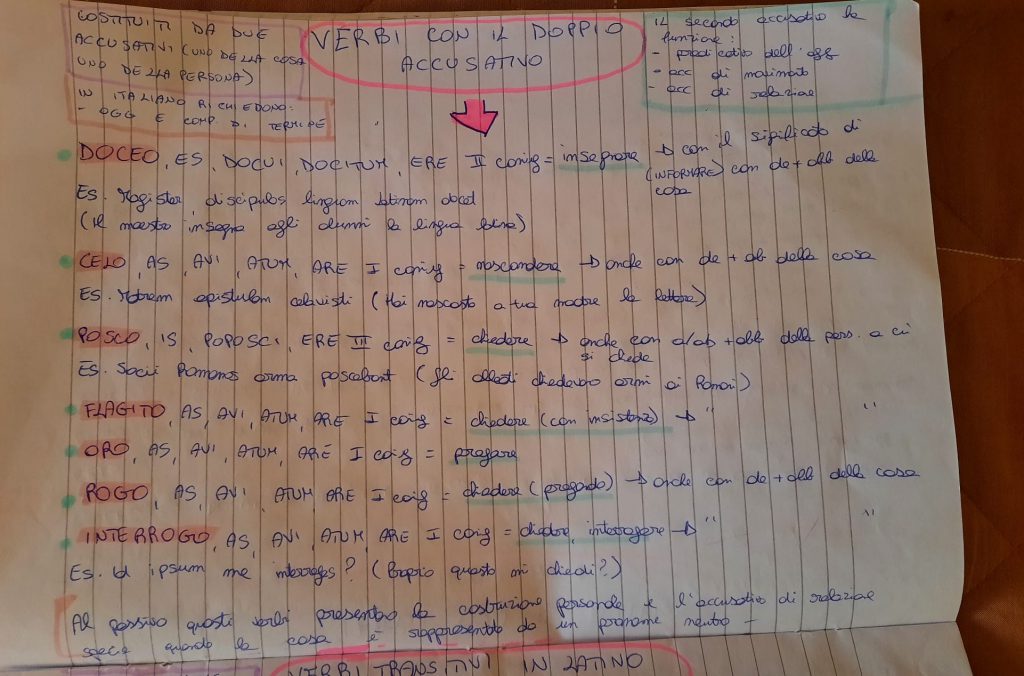 COSTITUITI DA DUE
ACCUSATIVI (UNO DELLA COSA
UNO DELLA PERSONA)
IN ITALIANO RICHIEDONO:
- OGG E COMP. DI TERMINE
VERBI CON IL DOPPIO
ACCUSATIVO
IL secondo accusativo ha
funzione:
- predicativo dell'ogg
- acc di movimento
- acc di relazione
DOCEO, ES, DOCUI, DOCITUM, ERE II coniug = insegnare → con il significato di
(INFORMARE) con de + abl della
cosa
Es. Magister, discipulos linguam latinam docet
(il maestro insegna agli alunni la lingua latina)
CELO, AS, AVI, ATUM, ARE I coniug = nascondere → anche con de + abl della cosa
Es. Matrem epistulam celavisti (Hai nascosto a tua madre la lettera)
POSCO, IS, POPOSCI, ERE III coniug = chiedere → anche con a/ab + abl della pers. a ci
si chiede
Es. Socii Romanos arma poscebant (gli alleati chiedevano armi ai Romani)
FLAGITO, AS, AVI, ATUM, ARE I coniug = chiedere (con insistenza) → " "
ORO, AS, AVI, ATUM, ARE I coniug = pregare
ROGO, AS, AVI, ATUM, ARE I coniug = chiedere (pregando) → anche con de + abl della cosa
INTERROGO, AS, AVI, ATUM, ARE I coniug = chiedere, interrogare → " "
Es. Id ipsum me interrogas? (Proprio questo mi chiedi?)
Al passivo questi verbi presentano la costruzione personale e l'accusativo di relazione
specie quando la cosa è rappresentata da un pronome neutro -
VERBI TRANSITIVI IN LATINO